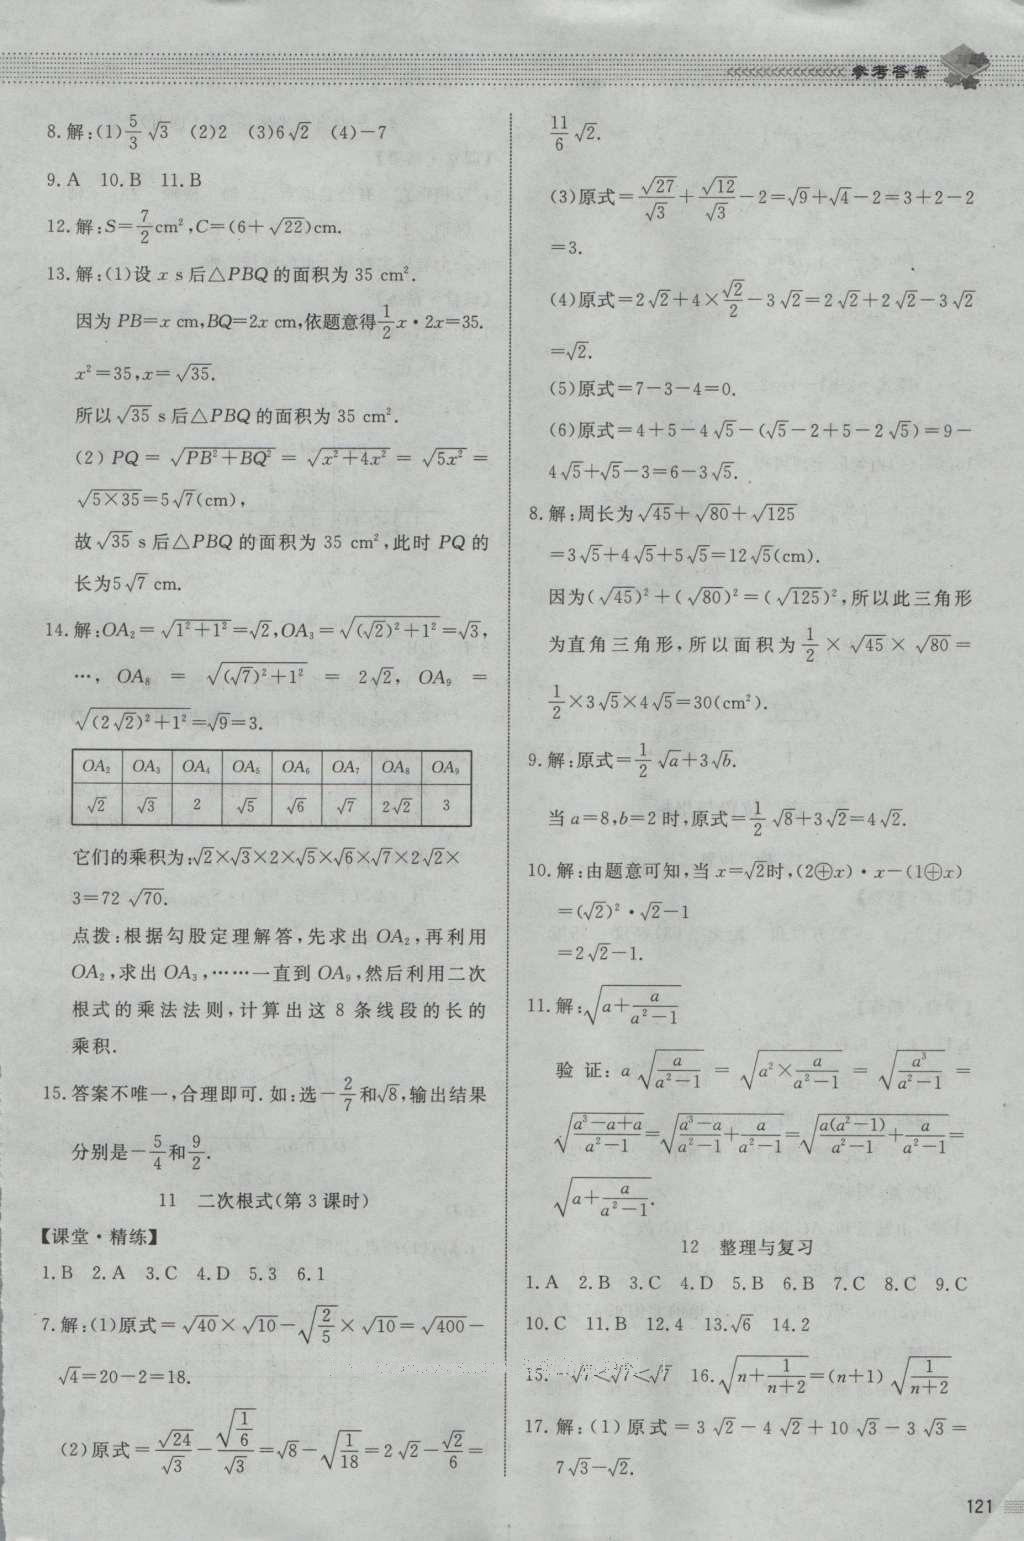 参考答案
8.解:(1)5/3 √3 (2)2 (3)6√2 (4)-7
9.A 10.B 11.B
12.解:S=7/2 cm²,C=(6+√22)cm.
13.解:(1)设 x s后△PBQ的面积为35 cm².
因为PB=x cm,BQ=2x cm,依题意得1/2 x·2x=35.
x²=35,x=√35.
所以√35 s后△PBQ的面积为35 cm².
(2)PQ=√(PB²+BQ²)=√(x²+4x²)=√(5x²)=
√(5×35)=5√7(cm),
故√35 s后△PBQ的面积为35 cm²,此时PQ的
长为5√7 cm.
14.解:OA₂=√(1²+1²)=√2,OA₃=√((√2)²+1²)=√3,
…,OA₈=√((√7)²+1²)=2√2,OA₉=
√((2√2)²+1²)=√9=3.
OA₂ OA₃ OA₄ OA₅ OA₆ OA₇ OA₈ OA₉
√2 √3 2 √5 √6 √7 2√2 3
它们的乘积为:√2×√3×2×√5×√6×√7×2√2×
3=72√70.
点拨:根据勾股定理解答,先求出OA₂,再利用
OA₂,求出OA₃,……一直到OA₉,然后利用二次
根式的乘法法则,计算出这8条线段的长的
乘积.
15.答案不唯一,合理即可.如:选-2/7和√8,输出结果
分别是-5/4和9/2.
11 二次根式(第3课时)
【课堂·精练】
1.B 2.A 3.C 4.D 5.3 6.1
7.解:(1)原式=√40×√10-√(2/5)×√10=√400-
√4=20-2=18.
(2)原式=√24/√3-√(1/6)/√3=√8-√(1/18)=2√2-√2/6=
11/6 √2.
(3)原式=√27/√3+√12/√3-2=√9+√4-2=3+2-2
=3.
(4)原式=2√2+4×√2/2-3√2=2√2+2√2-3√2
=√2.
(5)原式=7-3-4=0.
(6)原式=4+5-4√5-(√5-2+5-2√5)=9-
4√5+√5-3=6-3√5.
8.解:周长为√45+√80+√125
=3√5+4√5+5√5=12√5(cm).
因为(√45)²+(√80)²=(√125)²,所以此三角形
为直角三角形,所以面积为1/2×√45×√80=
1/2×3√5×4√5=30(cm²).
9.解:原式=1/2 √a+3√b.
当a=8,b=2时,原式=1/2 √8+3√2=4√2.
10.解:由题意可知,当x=√2时,(2⊕x)·x-(1⊕x)
=(√2)²·√2-1
=2√2-1.
11.解:√(a+a/(a²-1))
验证:a√(a/(a²-1))=√(a²×a/(a²-1))=√(a³/(a²-1))=
√((a³-a+a)/(a²-1))=√((a³-a)/(a²-1)+a/(a²-1))=√(a(a²-1)/(a²-1)+a/(a²-1))=
√(a+a/(a²-1)).
12 整理与复习
1.A 2.B 3.C 4.D 5.B 6.B 7.C 8.C 9.C
10.C 11.B 12.4 13.√6 14.2
15. 16.√(n+1/(n+2))=(n+1)√(1/(n+2))
17.解:(1)原式=3√2-4√2+10√3-3√3=
7√3-√2.
121